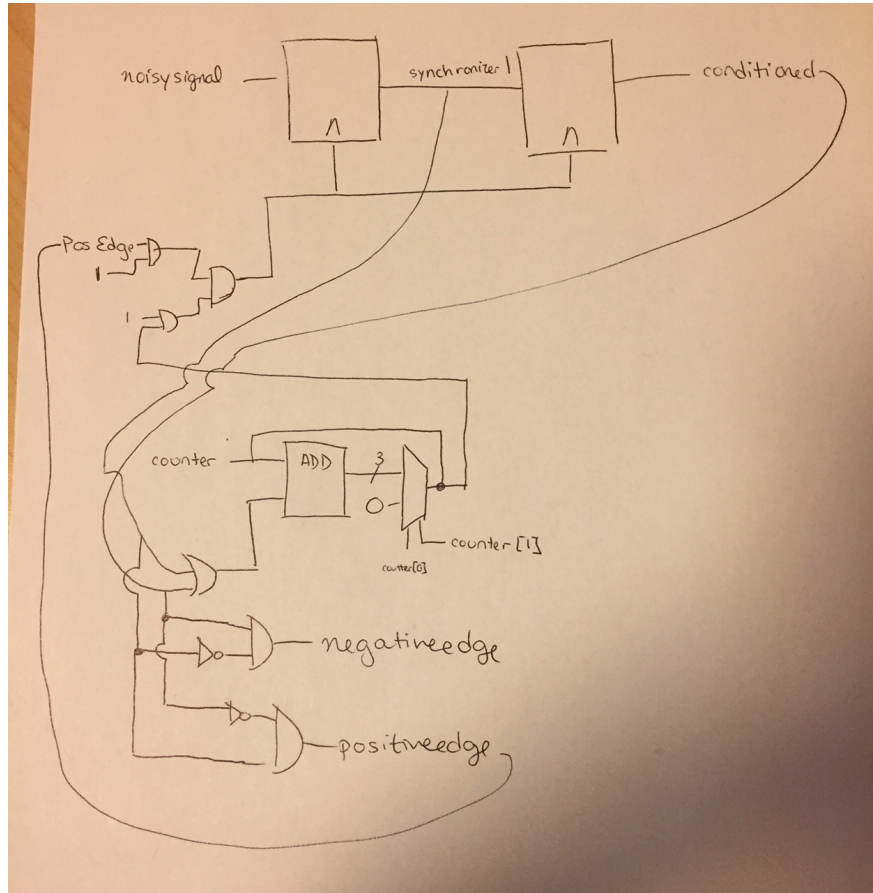 noisysignal
synchronizer 1
conditioned
Pos Edge
1
1
counter
ADD
3
0
counter [1]
counter[0]
negativeedge
positiveedge